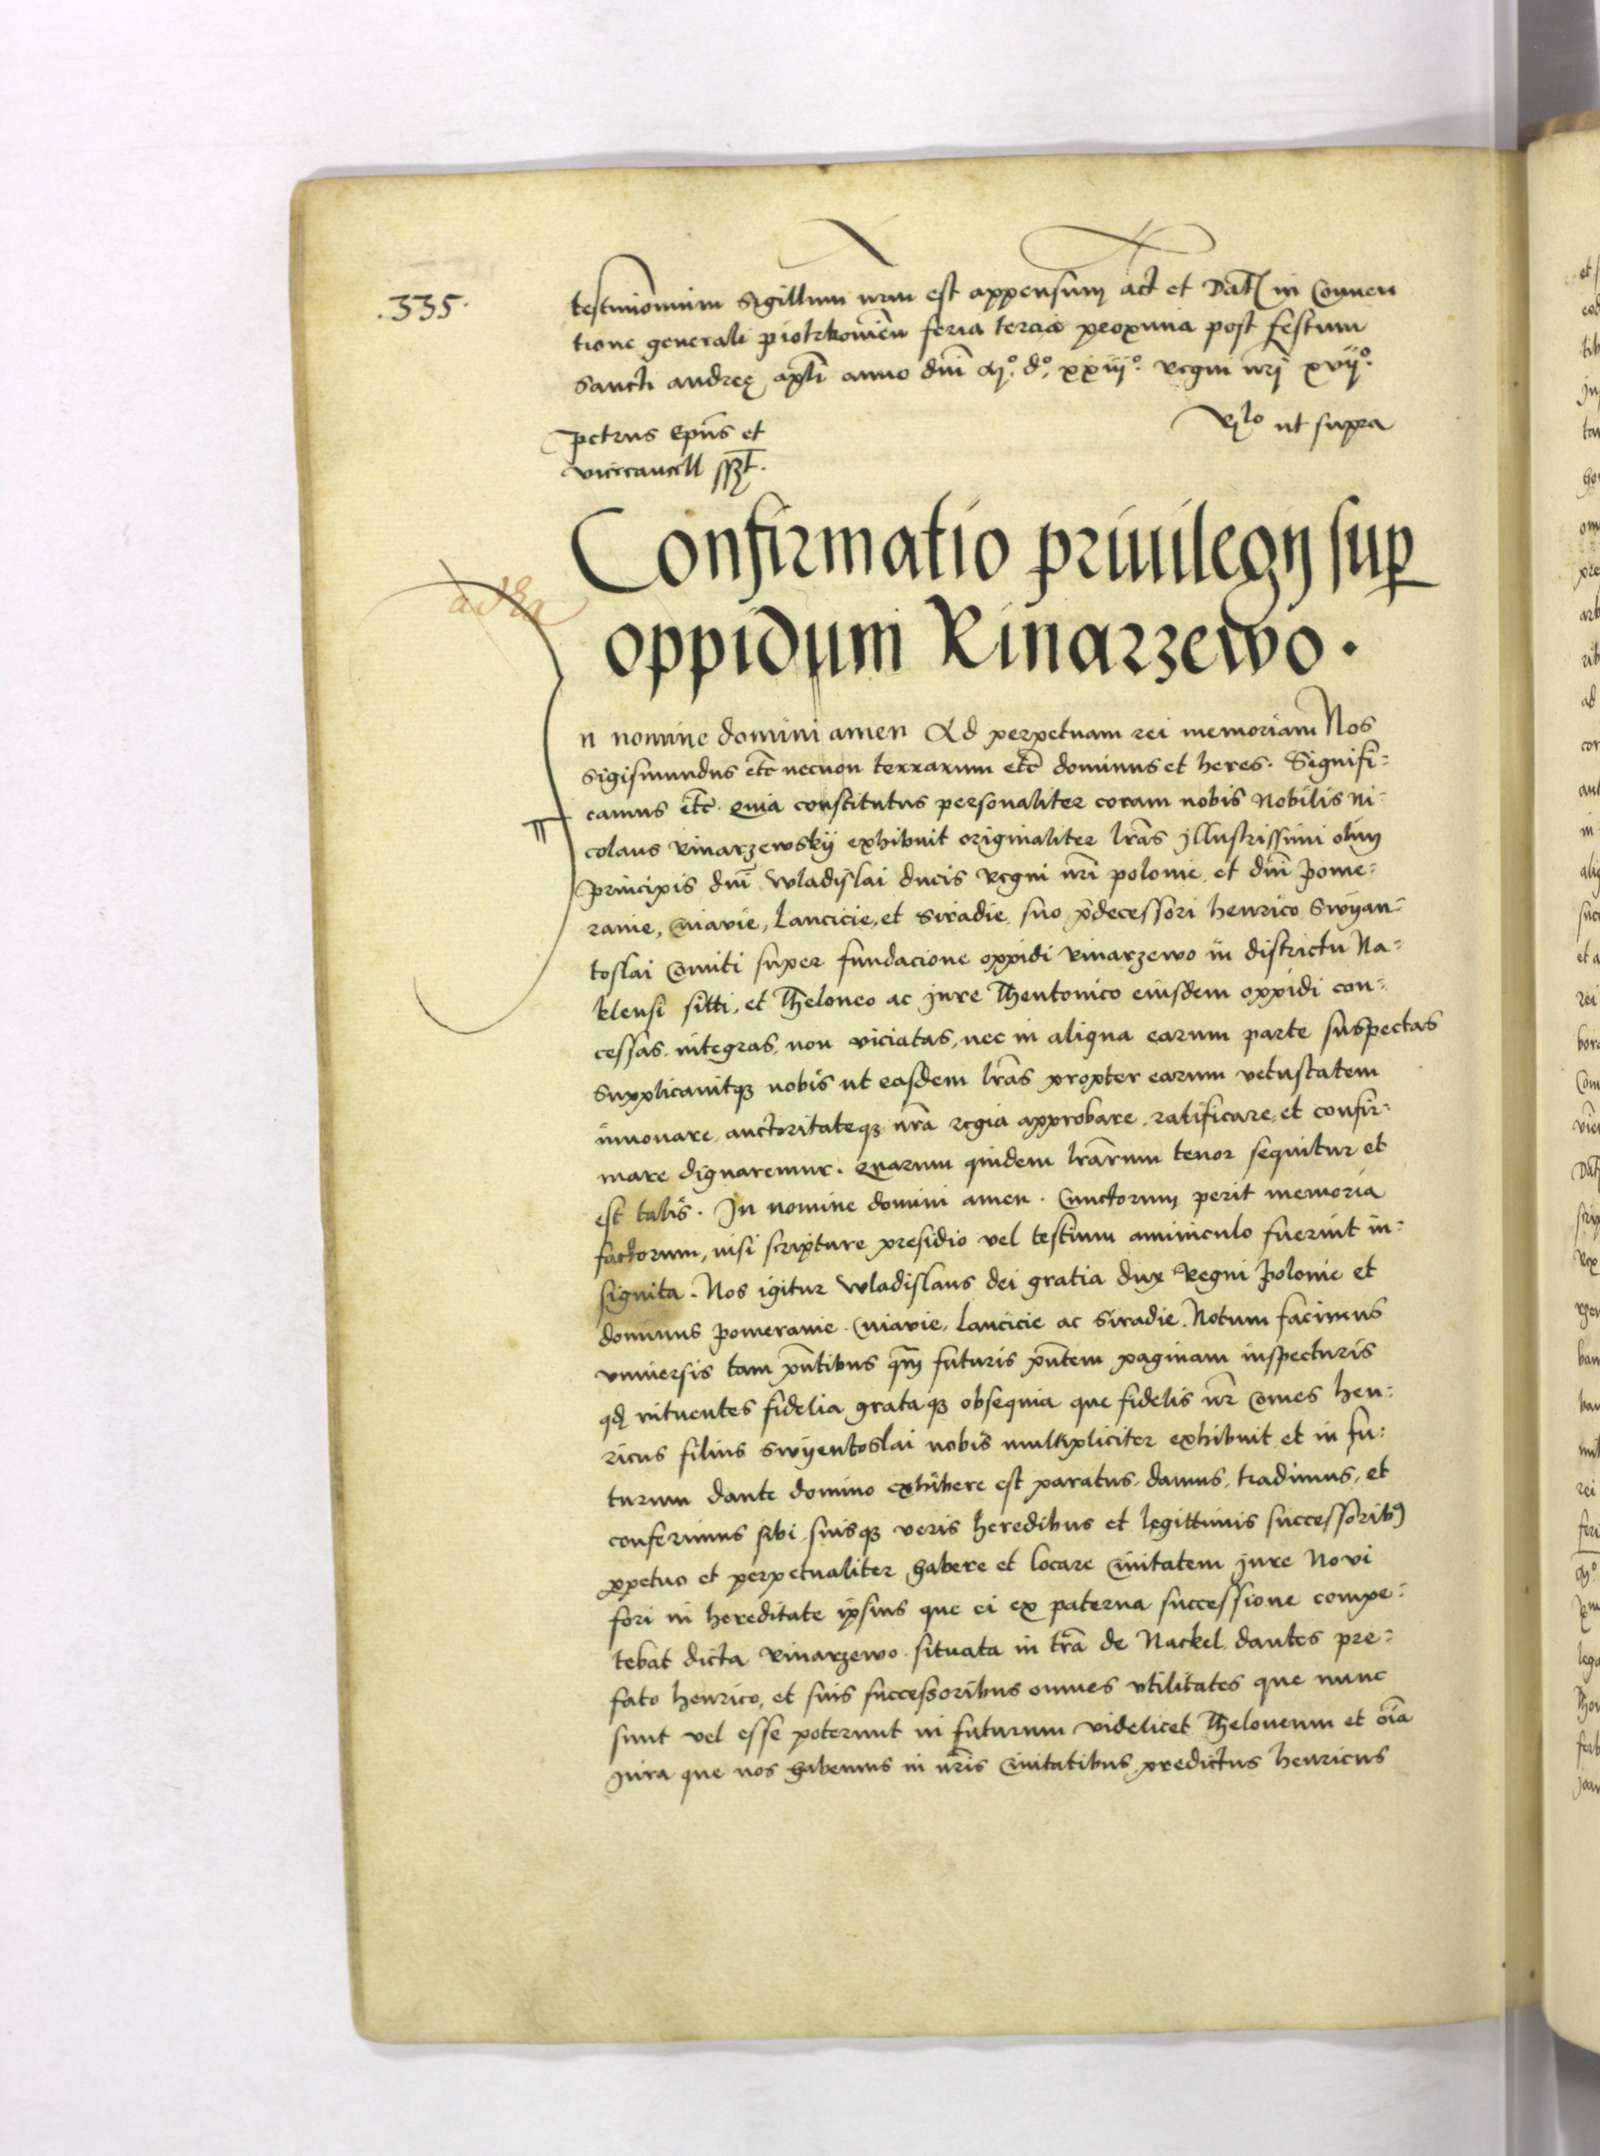 .335.
testimonium Sigillum nrm est appensum act et Dat in Conven
tione generali piotrkovien feria tercia proxima post festum
Sancti andreę apli anno dni M.° d.° xxiiij.° regni nri xvij°.
Rlo ut supra
Petrus Epus et
vicecancell sszt.
Confirmatio priuilegij sup
oppidum Rinarzewo.
n nomine domini amen Ad perpetuam rei memoriam Nos
Sigismundus etc necnon terrarum etc dominus et heres. Signifi=
camus etc. quia constitutus personaliter coram nobis Nobilis Ni=
colaus Rinarzewskij exhibuit originaliter lras jllustrissimi olim
principis dni wladislai ducis regni nri polonie, et dni Pome=
ranie, Cuiavie, Lancicie, et Siradie suo pdecessori henrico Swyan=
toslai Comiti super fundacione oppidi Rinarzewo in districtu Na=
klensi sitti, et Theloneo ac jure Thentonico eiusdem oppidi con=
cessas, integras, non viciatas, nec in aliqua earum parte suspectas
Supplicavitqz nobis ut easdem lras propter earum vetustatem
innovare, auctoritateqz nra regia approbare, ratificare, et confir=
mare dignaremur. quarum quidem lrarum tenor sequitur et
est talis. In nomine domini amen. Cunctorum perit memoria
factorum, nisi scripture presidio vel testium aminiculo fuerint in=
signita. Nos igitur wladislaus dei gratia dux Regni Polonie et
dominus Pomeranie, Cuiavie, Lancicie ac Siradie. Notum facimus
vniversis tam pntibus qm futuris pntem paginam inspecturis
qd intuentes fidelia grataqz obsequia que fidelis nr Comes hen=
ricus filius Swyentoslai nobis multipliciter exhibuit et in fu=
turum dante domino exhibere est paratus, damus, tradimus, et
conferimus sibi suisqz veris heredibus et legittimis successoribus
ppetuo et perpetualiter habere et locare Civitatem jure Novi
fori in hereditate ipsius que ei ex paterna successione compe=
tebat dicta Rinarzewo situata in tra de Nackel dantes pre=
fato henrico, et suis successoribus omnes vtilitates que nunc
sunt vel esse poterunt in futurum videlicet Theloneum et oia
jura que nos habemus in nris Civitatibus predictus henricus